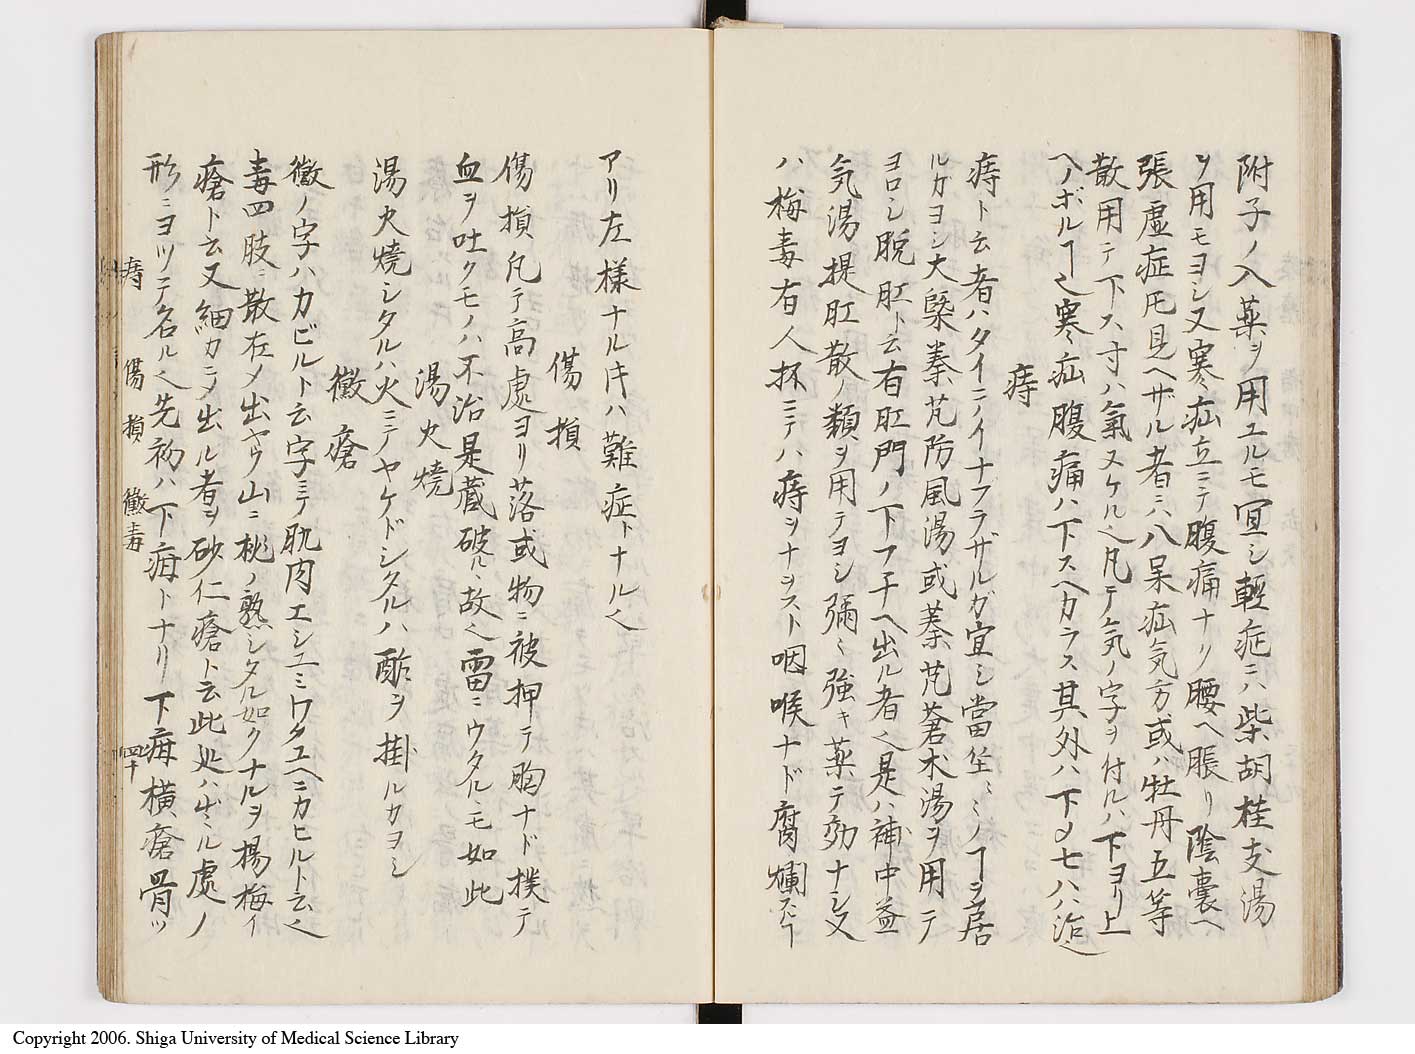 附子ノ入薬ヲ用ユルモ宜シ軽症ニハ柴胡桂支湯
ヲ用モヨシ又寒疝立ニテ腹痛ナリ腰ヘ脹リ陰嚢ヘ
張虚症𪜈見ヘザル者ニハ八呆疝気方或ハ牡丹五等
散用テ下ス寸ハ氣ヌケル也凡テ気ノ字ヲ付ルハ下ヨリ上
ヘノボルヿ也寒疝腹痛ハ下スヘカラス其外ハ下〆七八ハ治也
痔
痔ト云者ハタイニノイナフラザルガ宜シ當坐ニミノヿヲ居
ルカヨシ大槩秦艽防風湯或蓁艽蒼朮湯ヲ用テ
ヨロシ脱肛ト云有肛門ノ下フ子ヘ出ル者也是ハ補中益
気湯提肛散ノ類ヲ用テヨシ彌ミ強キ薬テ効ナシ又
ハ梅毒有人抔ニテハ痔ヲナヲスト咽喉ナド腐爛スヿ
アリ左様ナル㐧ハ難症トナル也
傷損
傷損凡テ高處ヨリ落或物ニ被押テ胸ナド撲テ
血ヲ吐クモノハ不治是蔵破ルヽ故也雷ニウタルヽモ如此
湯火焼
湯火焼シタルハ火ニテヤケドシタルハ酢ヲ掛ルカヨシ
黴瘡
黴ノ字ハカビルト云字ニテ肌肉エシユミワタユヘニカヒルト云也
毒四肢ニ散在〆出ヤウ山ニ桃ノ熟シタル如クナルヲ楊梅
瘡ト云又細カニ〆出ル者ヲ砂仁瘡ト云此処ハ出ル處ノ
形ニヨツテ名ル也先初ハ下疳トナリ下疳横瘡骨ツ
痔 傷損 黴毒 四十
Copyright 2006. Shiga University of Medical Science Library